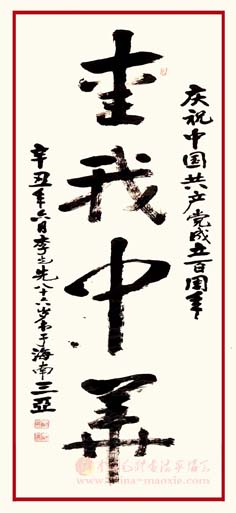 庆祝中国共产党成立百周年
爱我中华
辛丑年六月李之先八十六岁书于海南三亚
www.china-maoxie.com